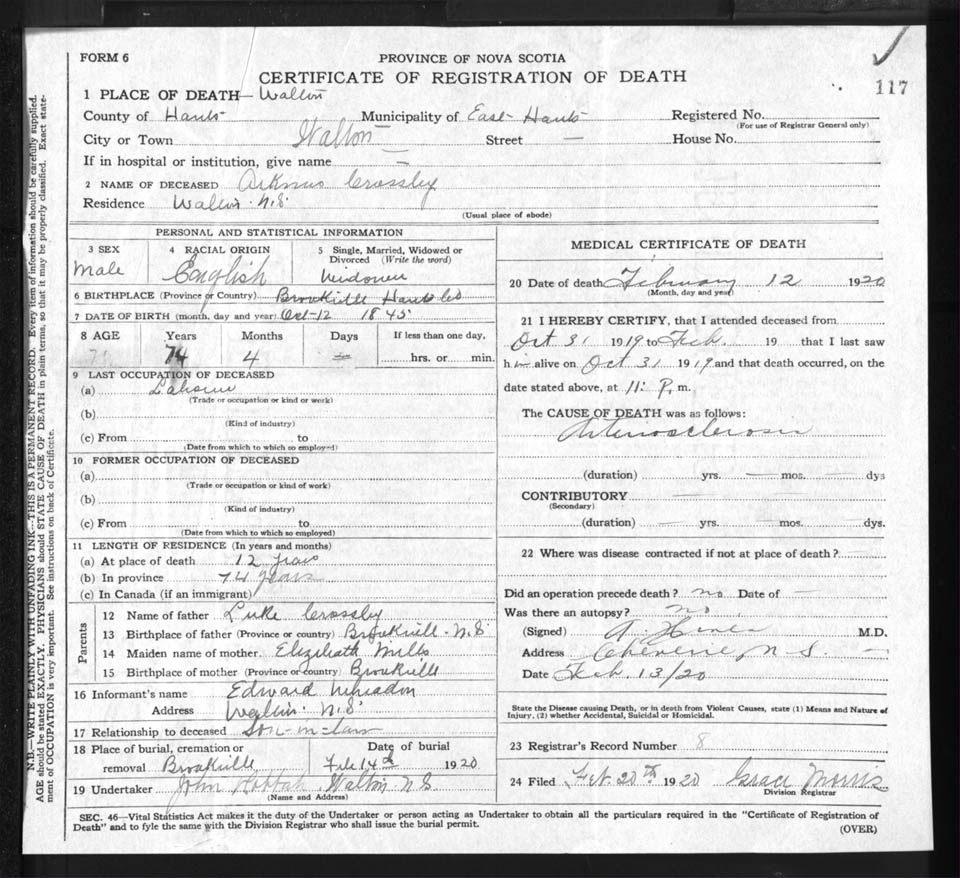 FORM 6
PROVINCE OF NOVA SCOTIA
CERTIFICATE OF REGISTRATION OF DEATH
117
1 PLACE OF DEATH— Walton
County of Hants Municipality of East Hants Registered No.
(For use of Registrar General only)
City or Town Walton Street — House No.
If in hospital or institution, give name —
2 NAME OF DECEASED Crossley
Residence Walton N.S.
(Usual place of abode)
PERSONAL AND STATISTICAL INFORMATION
3 SEX 4 RACIAL ORIGIN 5 Single, Married, Widowed or
Divorced (Write the word)
Male English Widower
6 BIRTHPLACE (Province or Country) Brookville Hants Co
7 DATE OF BIRTH (month, day and year) Oct-12 1845
8 AGE Years Months Days If less than one day,
74 4 — hrs. or min.
9 LAST OCCUPATION OF DECEASED
(a) Laborer
(Trade or occupation or kind or work)
(b)
(Kind of industry)
(c) From to
(Date from which to which so employed)
10 FORMER OCCUPATION OF DECEASED
(a)
(Trade or occupation or kind of work)
(b)
(Kind of industry)
(c) From to
(Date from which to which so employed)
11 LENGTH OF RESIDENCE (In years and months)
(a) At place of death 12 years
(b) In province 74 years
(c) In Canada (if an immigrant)
Parents
12 Name of father Luke Crossley
13 Birthplace of father (Province or country) Brookvill N.S.
14 Maiden name of mother. Elizibeath Mills
15 Birthplace of mother (Province or country) Brookvill
16 Informant's name Edward
Address Walton N.S.
17 Relationship to deceased Son-in-law
18 Place of burial, cremation or Date of burial
removal Brookville Feb 14th 1920
19 Undertaker John Walton N S
(Name and Address)
MEDICAL CERTIFICATE OF DEATH
20 Date of death February 12 1920
(Month, day and year)
21 I HEREBY CERTIFY, that I attended deceased from
Oct 31 1919 to Feb. 19 that I last saw
him alive on Oct 31 1919 and that death occurred, on the
date stated above, at 11 P. m.
The CAUSE OF DEATH was as follows:
Arteriosclerosis
(duration) — yrs. — mos. — dys
CONTRIBUTORY —
(Secondary)
(duration) — yrs. — mos. — dys.
22 Where was disease contracted if not at place of death? —
Did an operation precede death? no Date of —
Was there an autopsy? no
(Signed) M.D.
Address Cheverie, N.S.
Date Feb. 13/20
State the Disease causing Death, or in death from Violent Causes, state (1) Means and Nature of
Injury, (2) whether Accidental, Suicidal or Homicidal.
23 Registrar's Record Number 8
24 Filed Feb. 20th 1920 Grace Morris
Division Registrar
SEC. 46—Vital Statistics Act makes it the duty of the Undertaker or person acting as Undertaker to obtain all the particulars required in the "Certificate of Registration of
Death" and to fyle the same with the Division Registrar who shall issue the burial permit.
(OVER)
N.B.—WRITE PLAINLY WITH UNFADING INK—THIS IS A PERMANENT RECORD. Every item of information should be carefully supplied.
AGE should be stated EXACTLY. PHYSICIANS should STATE CAUSE OF DEATH in plain terms, so that it may be properly classified. Exact state-
ment of OCCUPATION is very important. See instructions on back of Certificate.